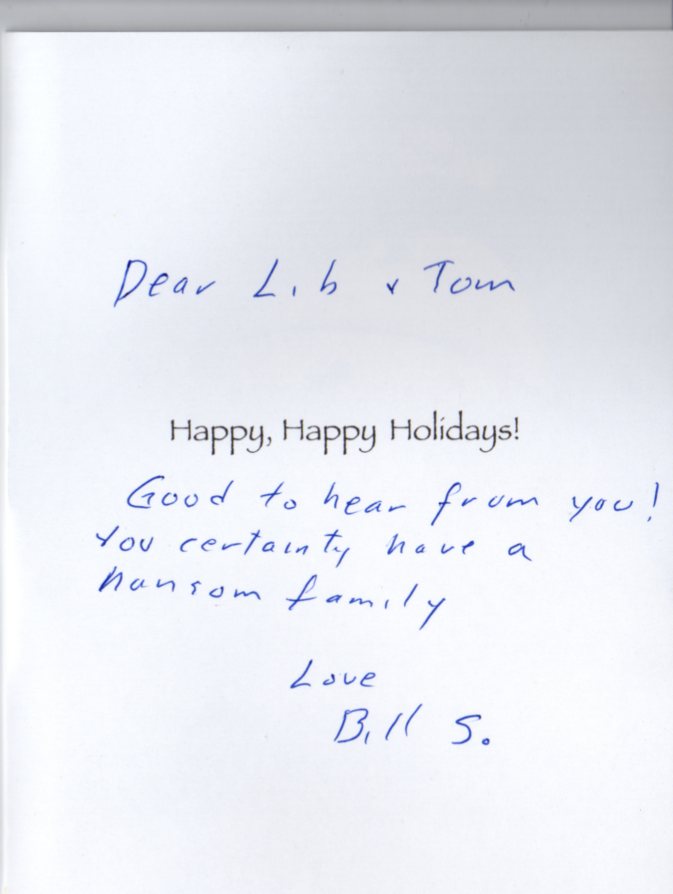 Dear Lib & Tom
Happy, Happy Holidays!
Good to hear from you!
You certainty have a
hansom family
Love
Bill S.